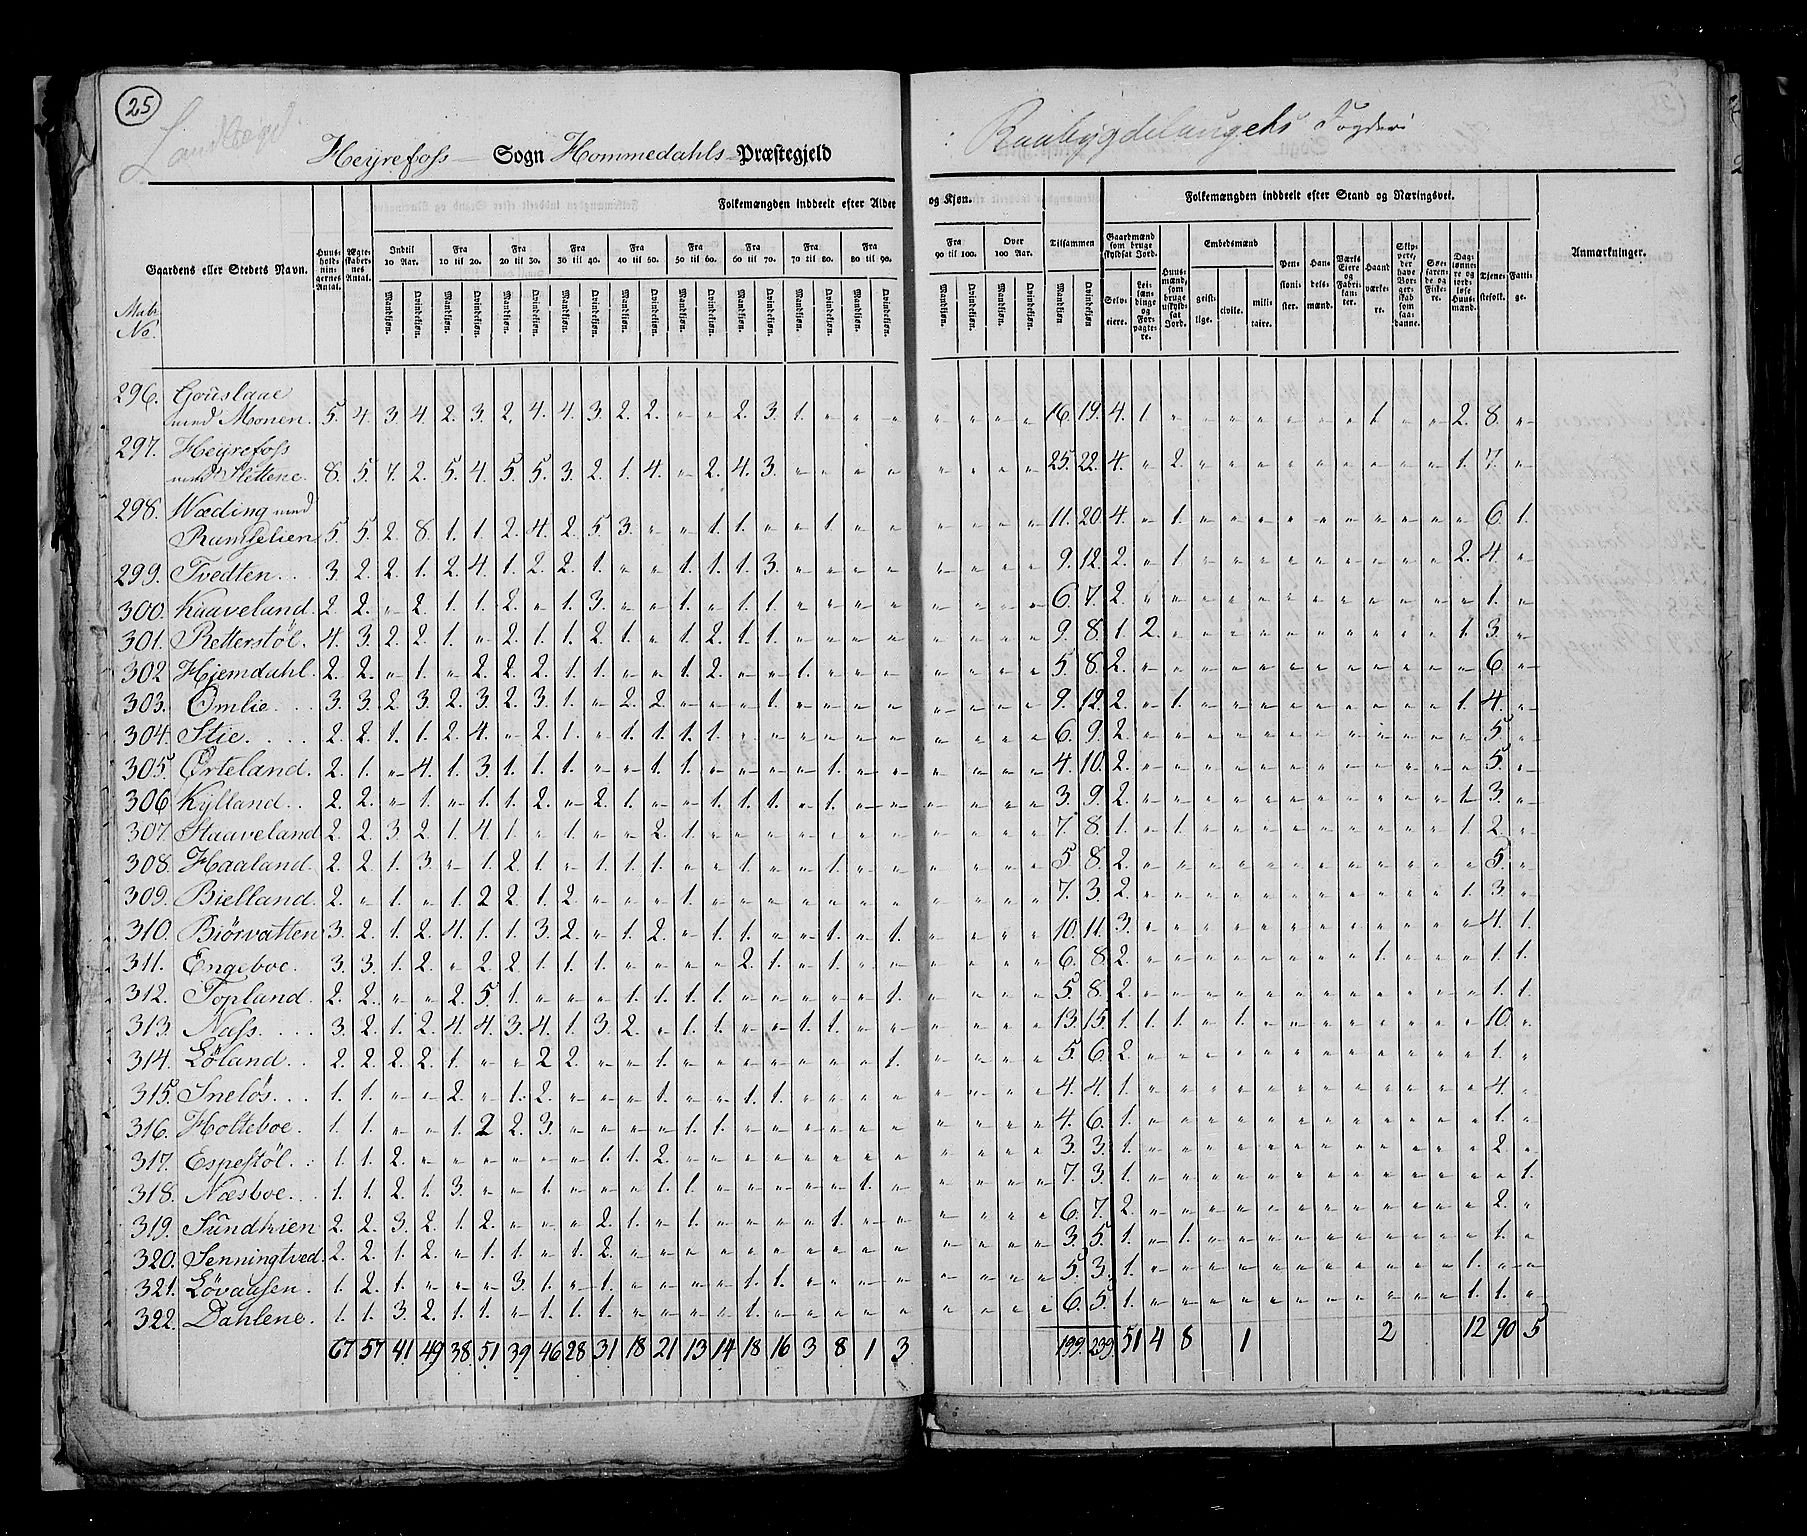 25
Heyrefoss Sogn Hommedahls Præstegjeld
Raabygdelaugets Fogderi
Folkemængden inddeelt efter Alder og Kjøn.
Folkemængden inddeelt efter Stand og Næringsvei.
Gaardens eller Stedets Navn.
Matr No.
Huusholdningernes Antal.
Ægteskabernes Antal.
Indtil 10 Aar.
Fra 10 til 20.
Fra 20 til 30.
Fra 30 til 40.
Fra 40 til 50.
Fra 50 til 60.
Fra 60 til 70.
Fra 70 til 80.
Fra 80 til 90.
Fra 90 til 100.
Over 100 Aar.
Tilsammen
Mandkjøn. Qvindekjøn.
Gaardmænd som bruge skyldsat Jord.
Selveiere.
Leilændinge og Forpagtere.
Huusmænd, som bruge uskyldsat Jord.
Embedsmænd
geistlige.
civile.
militaire.
Pensionister.
Handelsmænd.
Værks Eiere og Fabrikanter.
Haandværkere.
Skippere, der have Borgerskab som saadanne.
Søefarende og Fiskere.
Daglønnere og jordløse Huusmænd.
Tjenestefolk.
Fattige.
Anmærkninger.
296. Gouslaae
med Monen. 5. 4. 3. 4. 2. 3. 2. 4. 4. 3. 2. 2. " " 2. 3. 1. " " " " " " " 16. 19. 4. 1. " " " " " " " 1. " " 2. 8. "
297. Heyrefoss
med Slettene. 8. 5. 7. 2. 5. 4. 5. 5. 3. 2. 1. 4. " 2. 4. 3. " " " " " " " " 25. 22. 4. " 2. " " " " " " " " " 1. 7. "
298. Wæding med
Ramselien 5. 5. 2. 8. 1. 1. 2. 4. 2. 5. 3. " " 1. 1. " " 1. " " " " " " 11. 20. 4. " 1. " " " " " " " " " " 6. 1.
299. Tvedten. 3. 2. 2. 1. 2. 4. 1. 2. 2. 1. " " 1. 1. 1. 3. " " " " " " " " 9. 12. 2. " 1. " " " " " " " " " 2. 4. "
300. Kaaveland. 2. 2. " 2. 1. 1. 2. " 1. 3. " 1. " 1. 1. " " " " " " " " 6. 7. 2. " " " " " " " " " " " " 1. "
301. Retterstøl. 4. 3. 2. 2. 1. " 2. 1. 1. 2. 1. " 1. 2. 1. 1. " " " " " " " " 9. 8. 1. 2. " " " " " " " " " " 1. 3. "
302 Hjemdahl. 2. 2. " 1. " 2. 2. 2. 1. 1. " " 1. 2. " " 1. " " " " " " " 5. 8. 2. " " " " " " " " " " " " 6. "
303. Omlie. 3. 3. 2. 3. 2. 3. 2. 3. 1. " 2. 2. " " " 1. " " " " " " " " 9. 12. 2. " 1. " " " " " " " " " 1. 4. "
304. Stie. 2. 2. 1. 1. 2. 4. " 2. 1. " 1. 1. 1. 1. 1. " " " " " " " " " 6. 9. 2. " " " " " " " " " " " " 5. "
305. Ørteland. 2. 1. " 4. 1. 3. 1. 1. 1. " " 1. 1. " " " " 1. " " " " " " 4. 10. 2. " " " " " " " " " " " " 5. "
306 Kylland. 2. 2. " 1. " 1. 1. 2. " 2. 1. " " 1. 1. 1. " 1. " " " " " " 3. 9. 2. " " " " " " " " " " " 1. 3. "
307. Haaveland 2. 2. 3. 2. 1. 4. 1. " 1. " " 2. 1. " " " " " " " " " " " 7. 8. 1. " 1. " " " " " " " " " 1. 2. "
308. Haaland. 2. 2. 1. 3. " 1. 2. 1. " 1. 1. 1. " 1. " " " 1. " " " " " " 5. 8. 2. " " " " " " " " " " " " 5. "
309. Bielland. 2. " 1. " 1. 2 2. 1. 2. " " " 1. " " " " " " " " " " " 7. 3. 2. " " " " " " " " " " " 1. 3. "
310. Biørvatten 3. 2. 1. 2. 4. 1. 1. 3. 2. " 1. 2. " 1. 1. " " 1. " 1. " " " " 10. 11. 3. " " " " " " " " " " " " 4. 1.
311. Engeboe. 3. 3. 1. 2. " 2. 2. 1. 1. 1. " " " " 2. 1. " 1. " " " " " " 6. 8. 2. " " " " " " " " 1. " " " 1. 1.
312. Topland. 2. 2. " " 2. 5. 1. " " " 1. 1. 1. 1. " " " " " 1. " " " " 5. 8. 2. " " " " " " " " " " " " 1. 1.
313. Nass. 3. 2. 1. 2. 4. 4. 3. 4. 1. 3. 2. " 1. 1. " " 1. 1. " " " " " " 13. 15. 1. 1. 1. " 1. " " " " " " " " 10. "
314. Løland. 2. 2. 2. 2. 1. " " 2 2. " " 1. " " " " " " " 1. " " " " 5. 6. 2. " " " " " " " " " " " " 1. "
315. Sneløs. 1. 1. " " 2. " 1. 2. " " " 1. " " 1. 1. " " " " " " " " 4. 4. 1. " " " " " " " " " " " " 4. "
316. Holteboe. 1. 1. " " 1. 2 2. 3. " " " " 1. 1. " " " " " " " " " " 4. 6. 1. " " " " " " " " " " " " 1. "
317. Espestøl. 1. 1. 2. " " " " " " 1. 1. 2. " " " " " " " " " " " " 3. 3. 1. " " " " " " " " " " " " 2. "
318. Næsboe. 1. 1. 2. 1. 3. " " 1. " " " 1. 1. " " " " " 1. " " " " " 7. 3. 1. " " " " " " " " " " " " " 1.
319. Sundhien 2. 2. 3. 2. 1. 2. " " " 2. 1. " 1. " " " " 1. " " " " " " 6. 7. 2. " " " " " " " " " " " " 2. "
320. Senningtved. 2. 2. 1. 2. " 1. 1. " 1. 2. " " " " " " " " " " " " " " 3. 5. 1. " 1. " " " " " " " " " " 1. "
321. Løvaasen. 1. 2. 1. " " " 3. 1. " 1. " " " " 1. 1. " " " " " " " " 5. 3. 1. " " " " " " " " " " " 1. " "
322. Dahlene. 1. 1. 3. 2. 1. 1. " 1. 1. 1. " " " " 1. " " " " " " " " " 6. 5. 1. " " " " " " " " " " " 1. 1. "
67 57 41 49 38. 51. 39 46 28 31 18 21 13 14 18 16 3 8 1 3 199. 239. 51 4 8 1 2 12 90 5